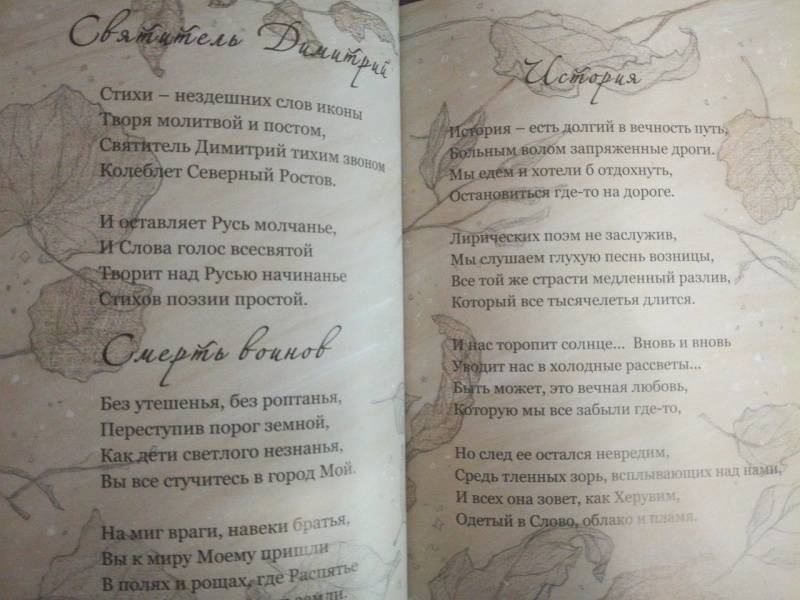 Святитель Димитрий
Стихи – нездешних слов иконы
Творя молитвой и постом,
Святитель Димитрий тихим звоном
Колеблет Северный Ростов.
И оставляет Русь молчанье,
И Слова голос всесвятой
Творит над Русью начинанье
Стихов поэзии простой.
Смерть воинов
Без утешенья, без роптанья,
Переступив порог земной,
Как дети светлого незнанья,
Вы все стучитесь в город Мой.
На миг враги, навеки братья,
Вы к миру Моему пришли
В полях и рощах, где Распятье
земли.
История
История – есть долгий в вечность путь,
Больным волом запряженные дроги.
Мы едем и хотели б отдохнуть,
Остановиться где-то на дороге.
Лирических поэм не заслужив,
Мы слушаем глухую песнь возницы,
Все той же страсти медленный разлив,
Который все тысячелетья длится.
И нас торопит солнце... Вновь и вновь
Уводит нас в холодные рассветы...
Быть может, это вечная любовь,
Которую мы все забыли где-то,
Но след ее остался невредим,
Средь тленных зорь, всплывающих над нами,
И всех она зовет, как Херувим,
Одетый в Слово, облако и пламя.